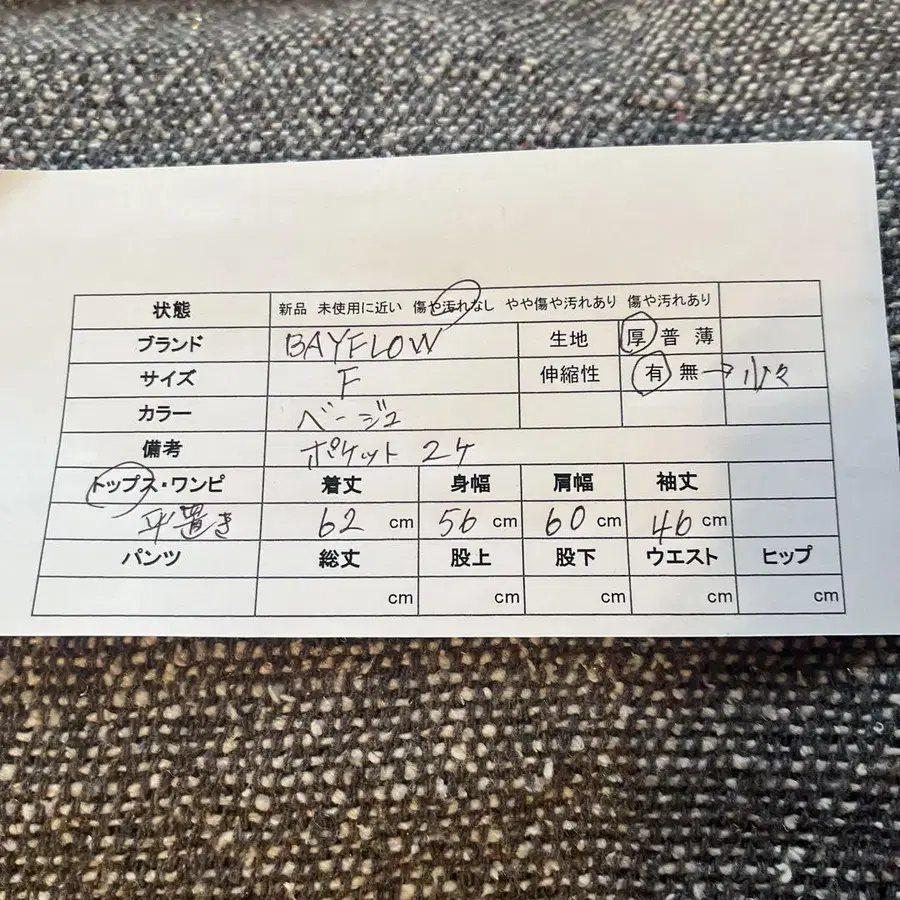 状態 新品 未使用に近い 傷や汚れなし やや傷や汚れあり 傷や汚れあり
ブランド BAYFLOW 生地 厚 普 薄
サイズ F 伸縮性 有 無→少々
カラー ベージュ
備考 ポケット 2ケ
トップス・ワンピ 着丈 身幅 肩幅 袖丈
平置き 62 cm 56 cm 60 cm 46 cm
パンツ 総丈 股上 股下 ウエスト ヒップ
cm cm cm cm cm